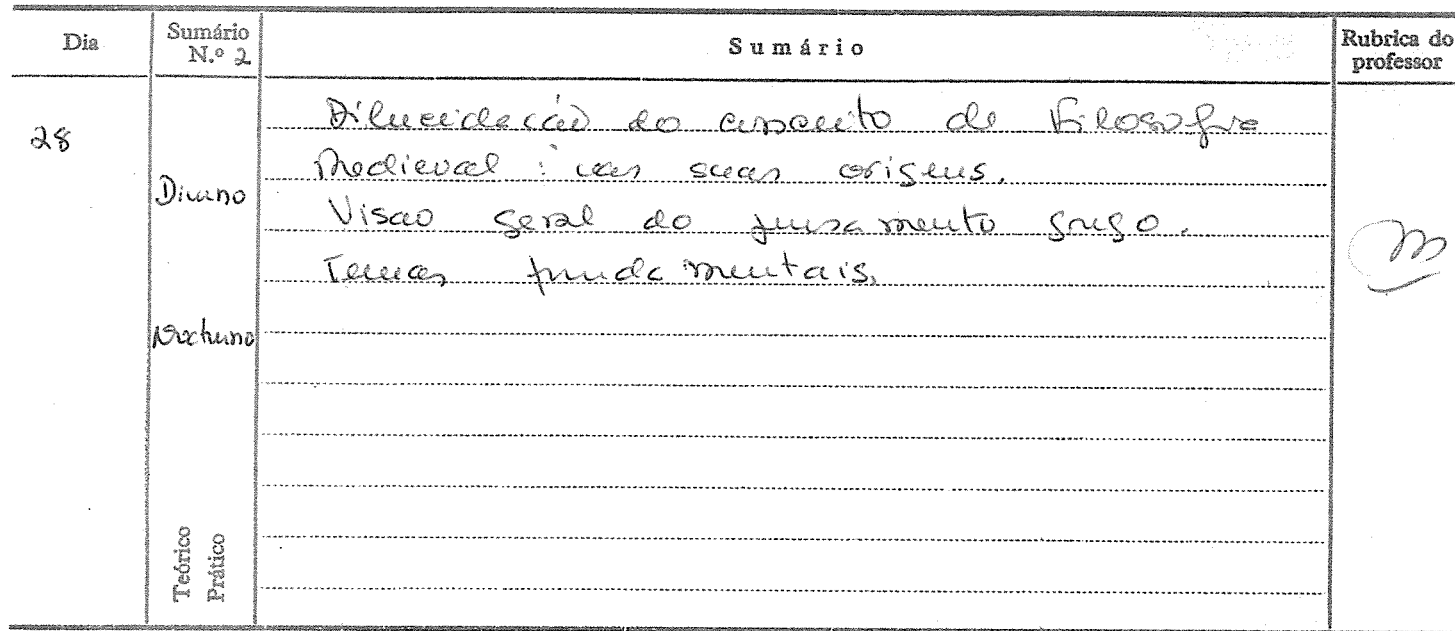 Dia
Sumário N.º 2
Sumário
Rubrica do professor
28
Diurno
Nocturno
Teórico
Prático
Dilucidação do conceito de Filosofia
Medieval : nas suas origens.
Visão geral do pensamento grego.
Temas fundamentais.